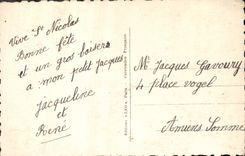 Vive St Nicolas
Bonne fête
et un gros baiser
a mon petit Jacques
Jacqueline
et
René
Mr Jacques Gavoury
4 place vogel
Amiens Somme